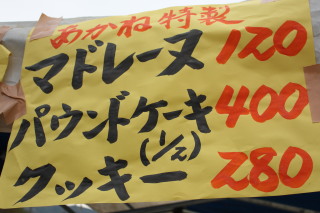 あかね特製
マドレーヌ 120
パウンドケーキ 400
(1/2)
クッキー 280